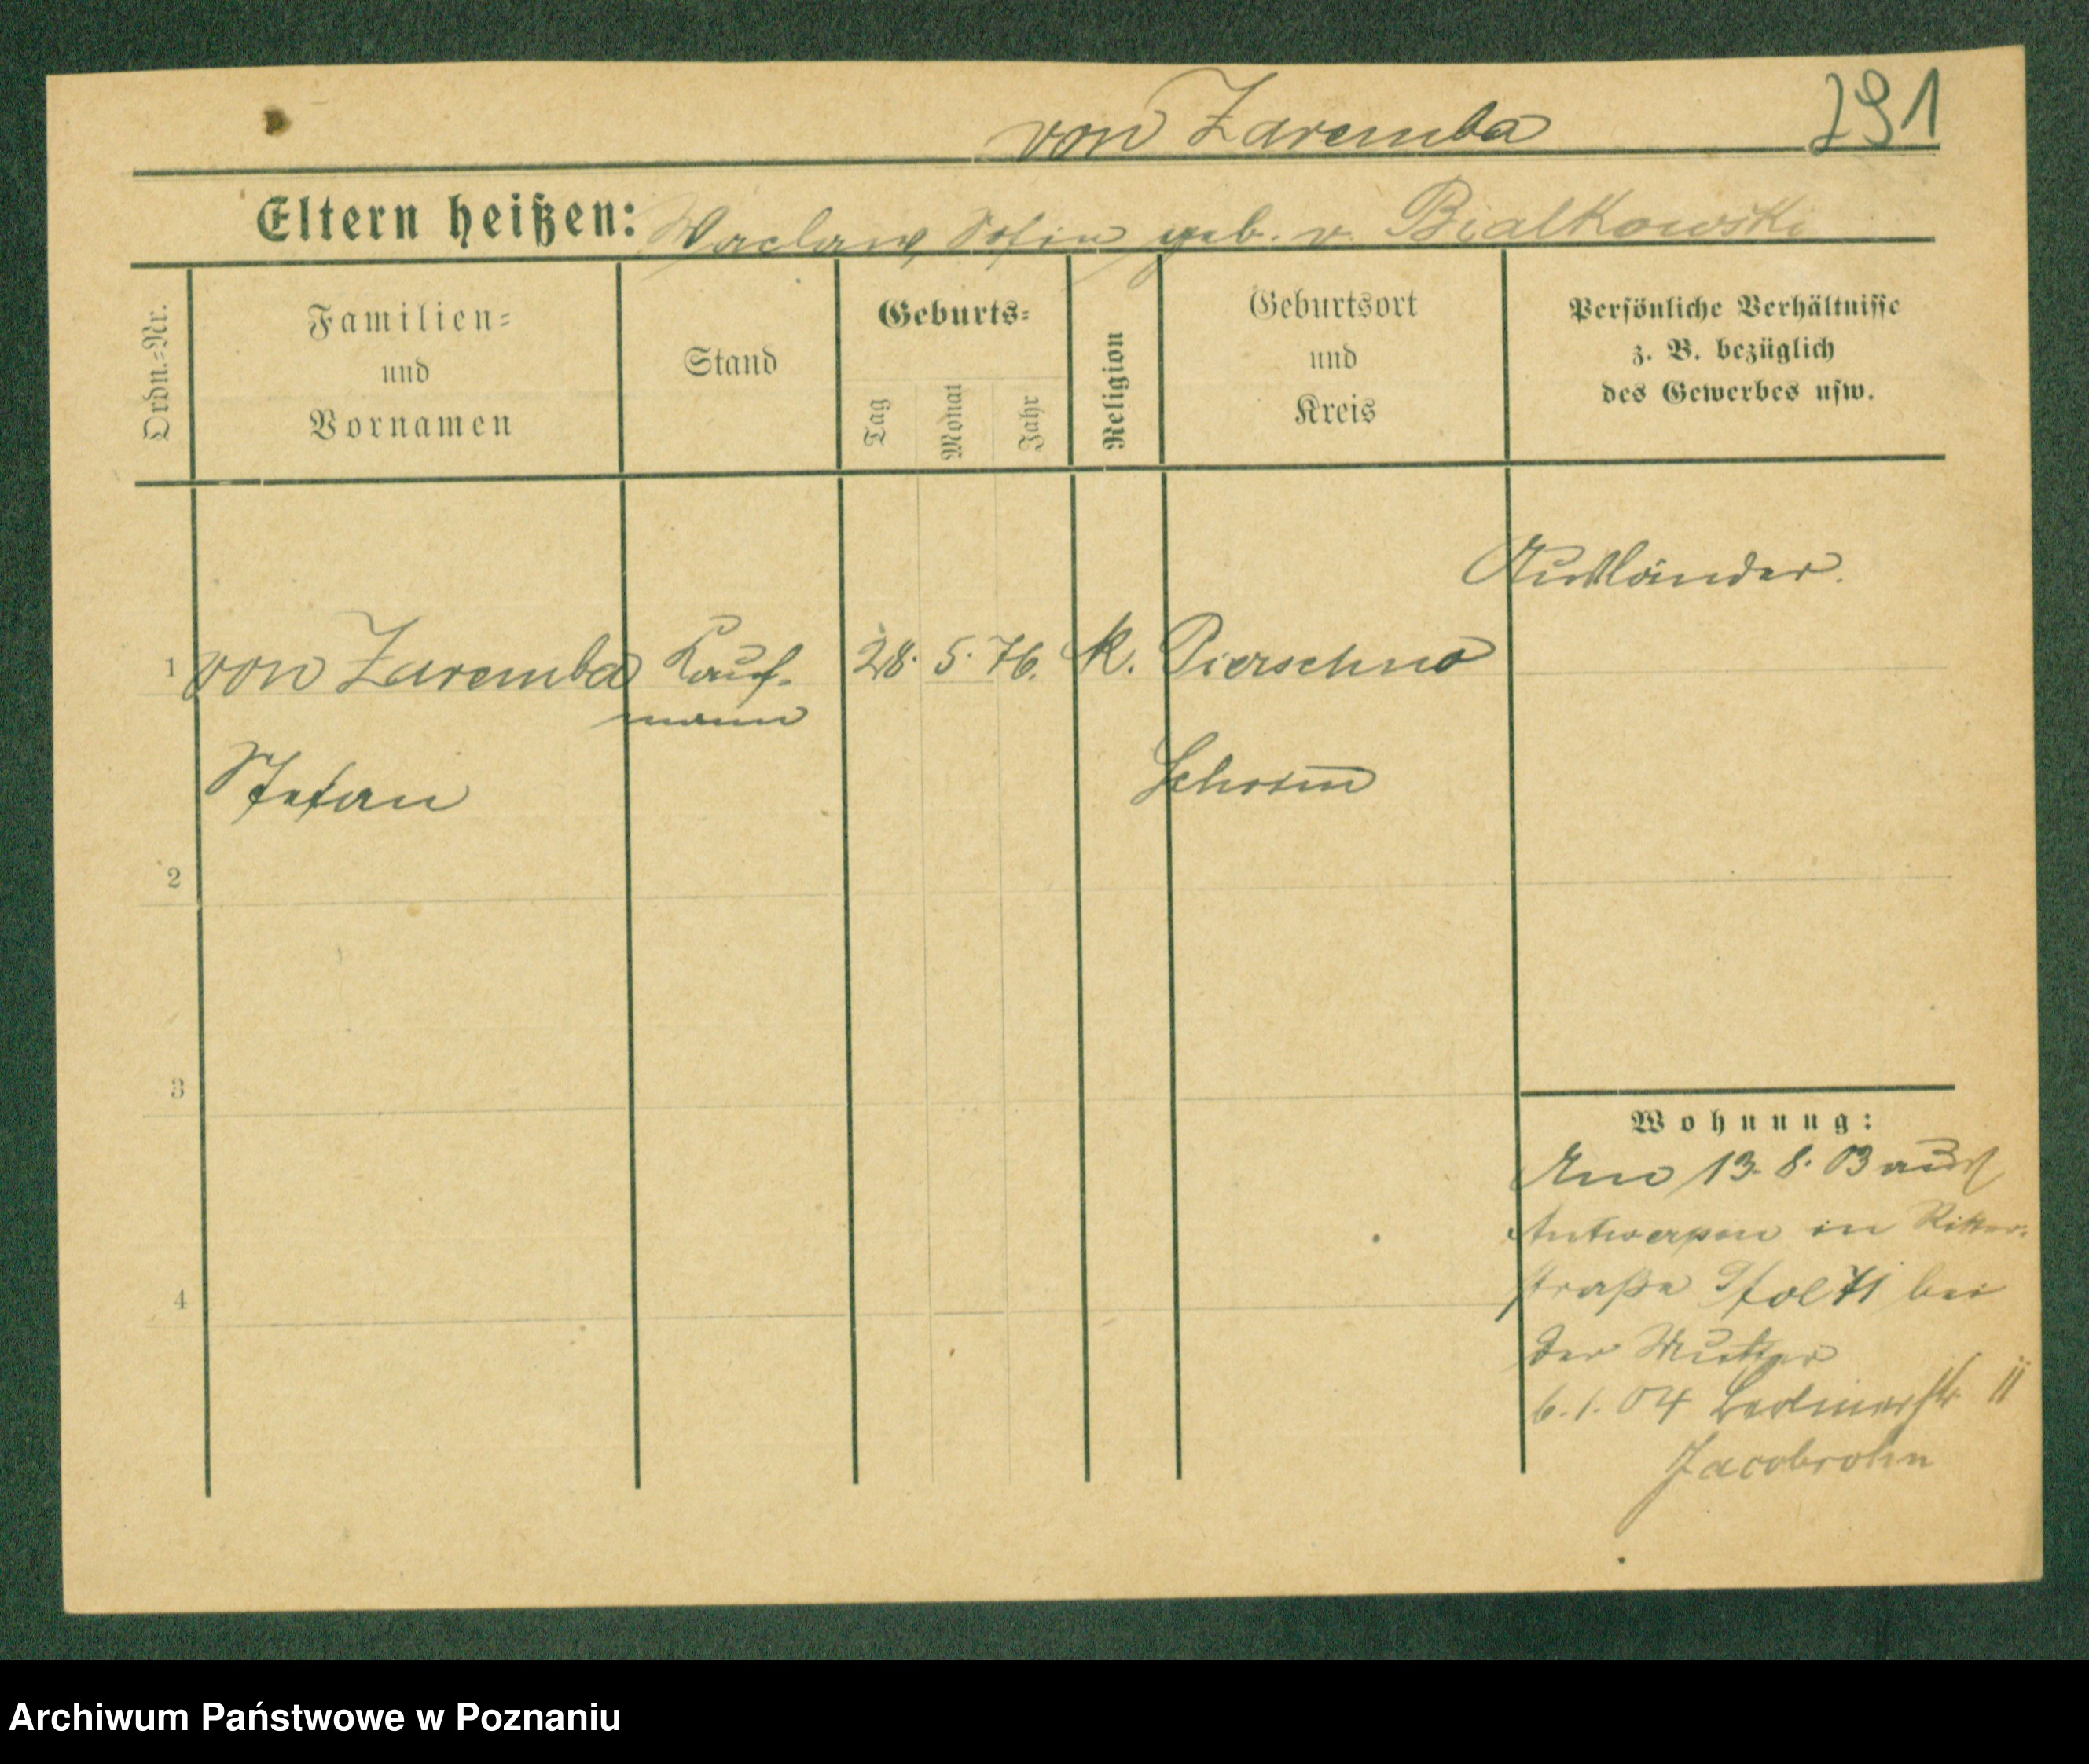 von Zaremba
291
Eltern heißen: Waclaw, Sofia geb. v. Bialkowski
Ordn.-Nr.
Familien-
und
Vornamen
Stand
Geburts-
Tag
Monat
Jahr
Religion
Geburtsort
und
Kreis
Persönliche Verhältnisse
z. B. bezüglich
des Gewerbes usw.
Ausländer.
1 von Zaremba Kauf- 28. 5. 76. k. Pierschno
mann
Stefan Schrim̄
2
3
4
Wohnung:
Am 13. 8. 03 aus
Antwerpen in Ritter-
straße bei
der Mutter
6. 1. 04 11
Archiwum Państwowe w Poznaniu